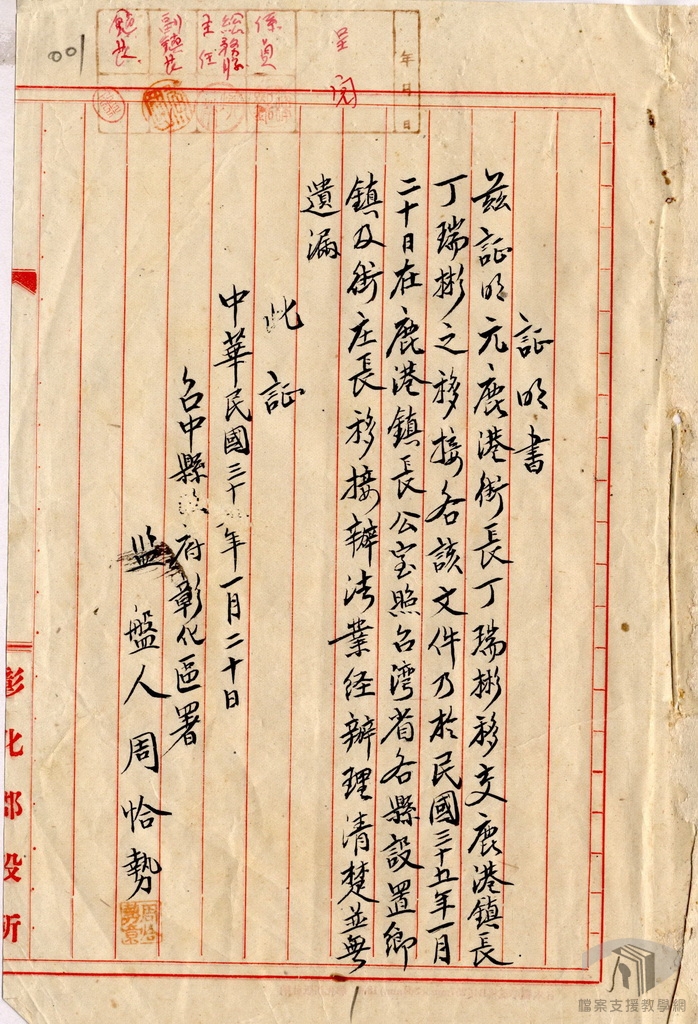 001
年 月 日
呈
閱
係員
總務股主任
副鎮長
鎮長
証明書
茲証明元鹿港街長丁瑞彬移交鹿港鎮長
丁瑞彬之移接各該文件乃於民國三十五年一月
二十日在鹿港鎮長公室照台灣省各縣設置鄉
鎮及街庄長移接辦法業経辦理清楚並無
遺漏
此証
中華民國三十 年一月二十日
台中縣政府彰化區署
監盤人周恰勢
彰化郡役所
檔案支援教學網